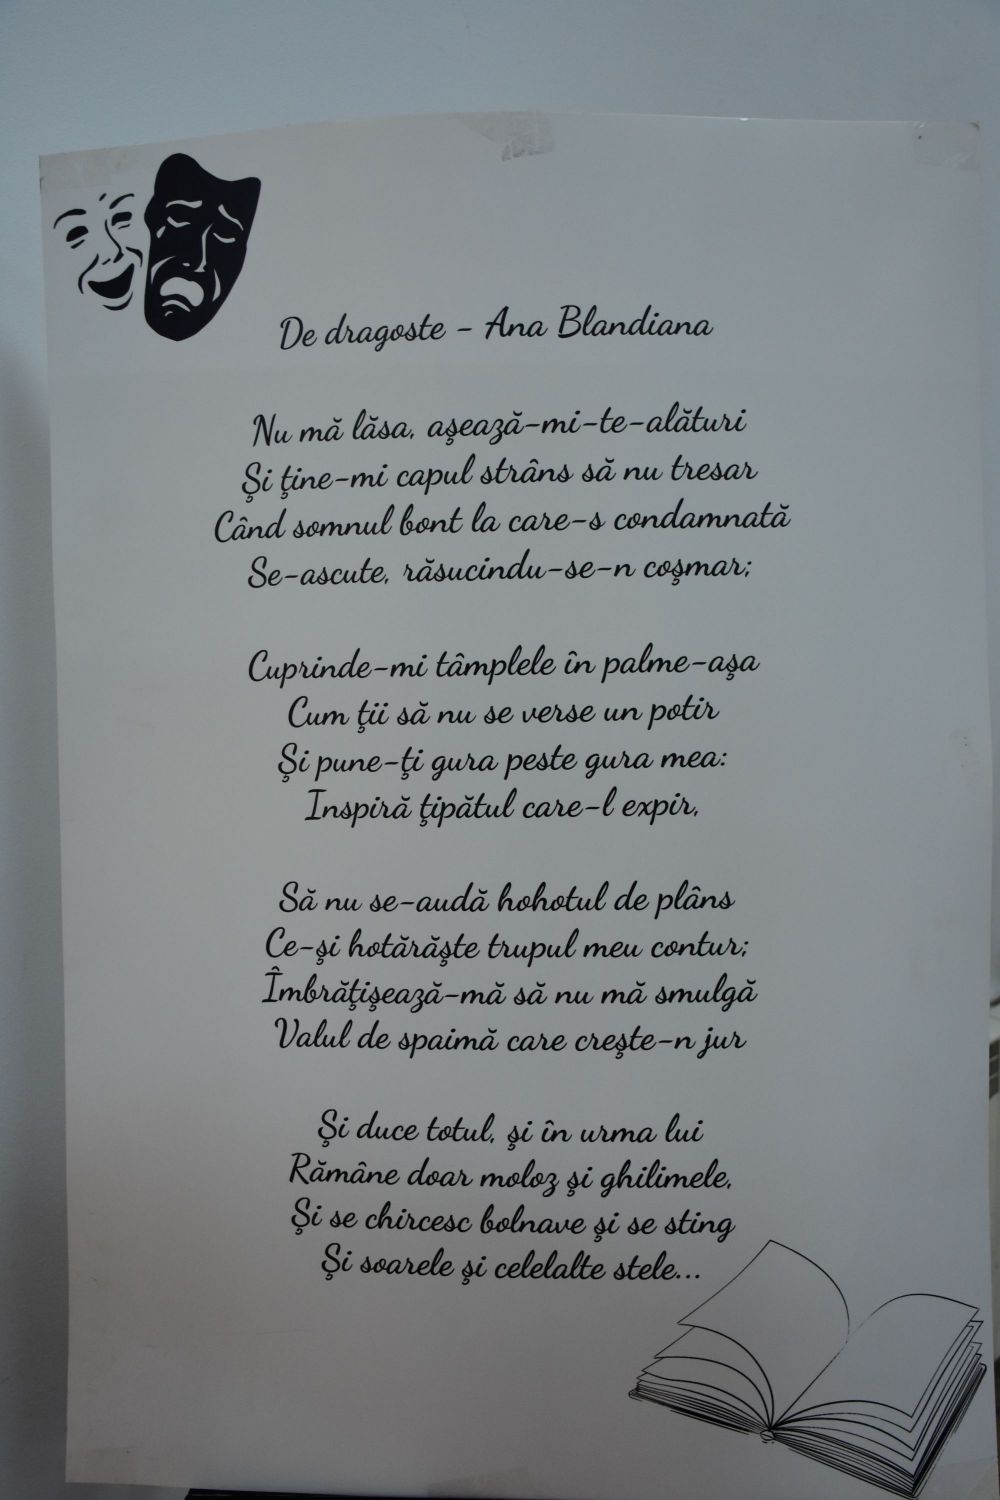 De dragoste - Ana Blandiana
Nu mă lăsa, aşează-mi-te-alături
Şi ţine-mi capul strâns să nu tresar
Când somnul bont la care-s condamnată
Se-ascute, răsucindu-se-n coşmar;
Cuprinde-mi tâmplele în palme-aşa
Cum ţii să nu se verse un potir
Şi pune-ţi gura peste gura mea:
Inspiră ţipătul care-l expir,
Să nu se-audă hohotul de plâns
Ce-şi hotărăşte trupul meu contur;
Îmbrăţişează-mă să nu mă smulgă
Valul de spaimă care creşte-n jur
Şi duce totul, şi în urma lui
Rămâne doar moloz şi ghilimele,
Şi se chircesc bolnave şi se sting
Şi soarele şi celelalte stele...